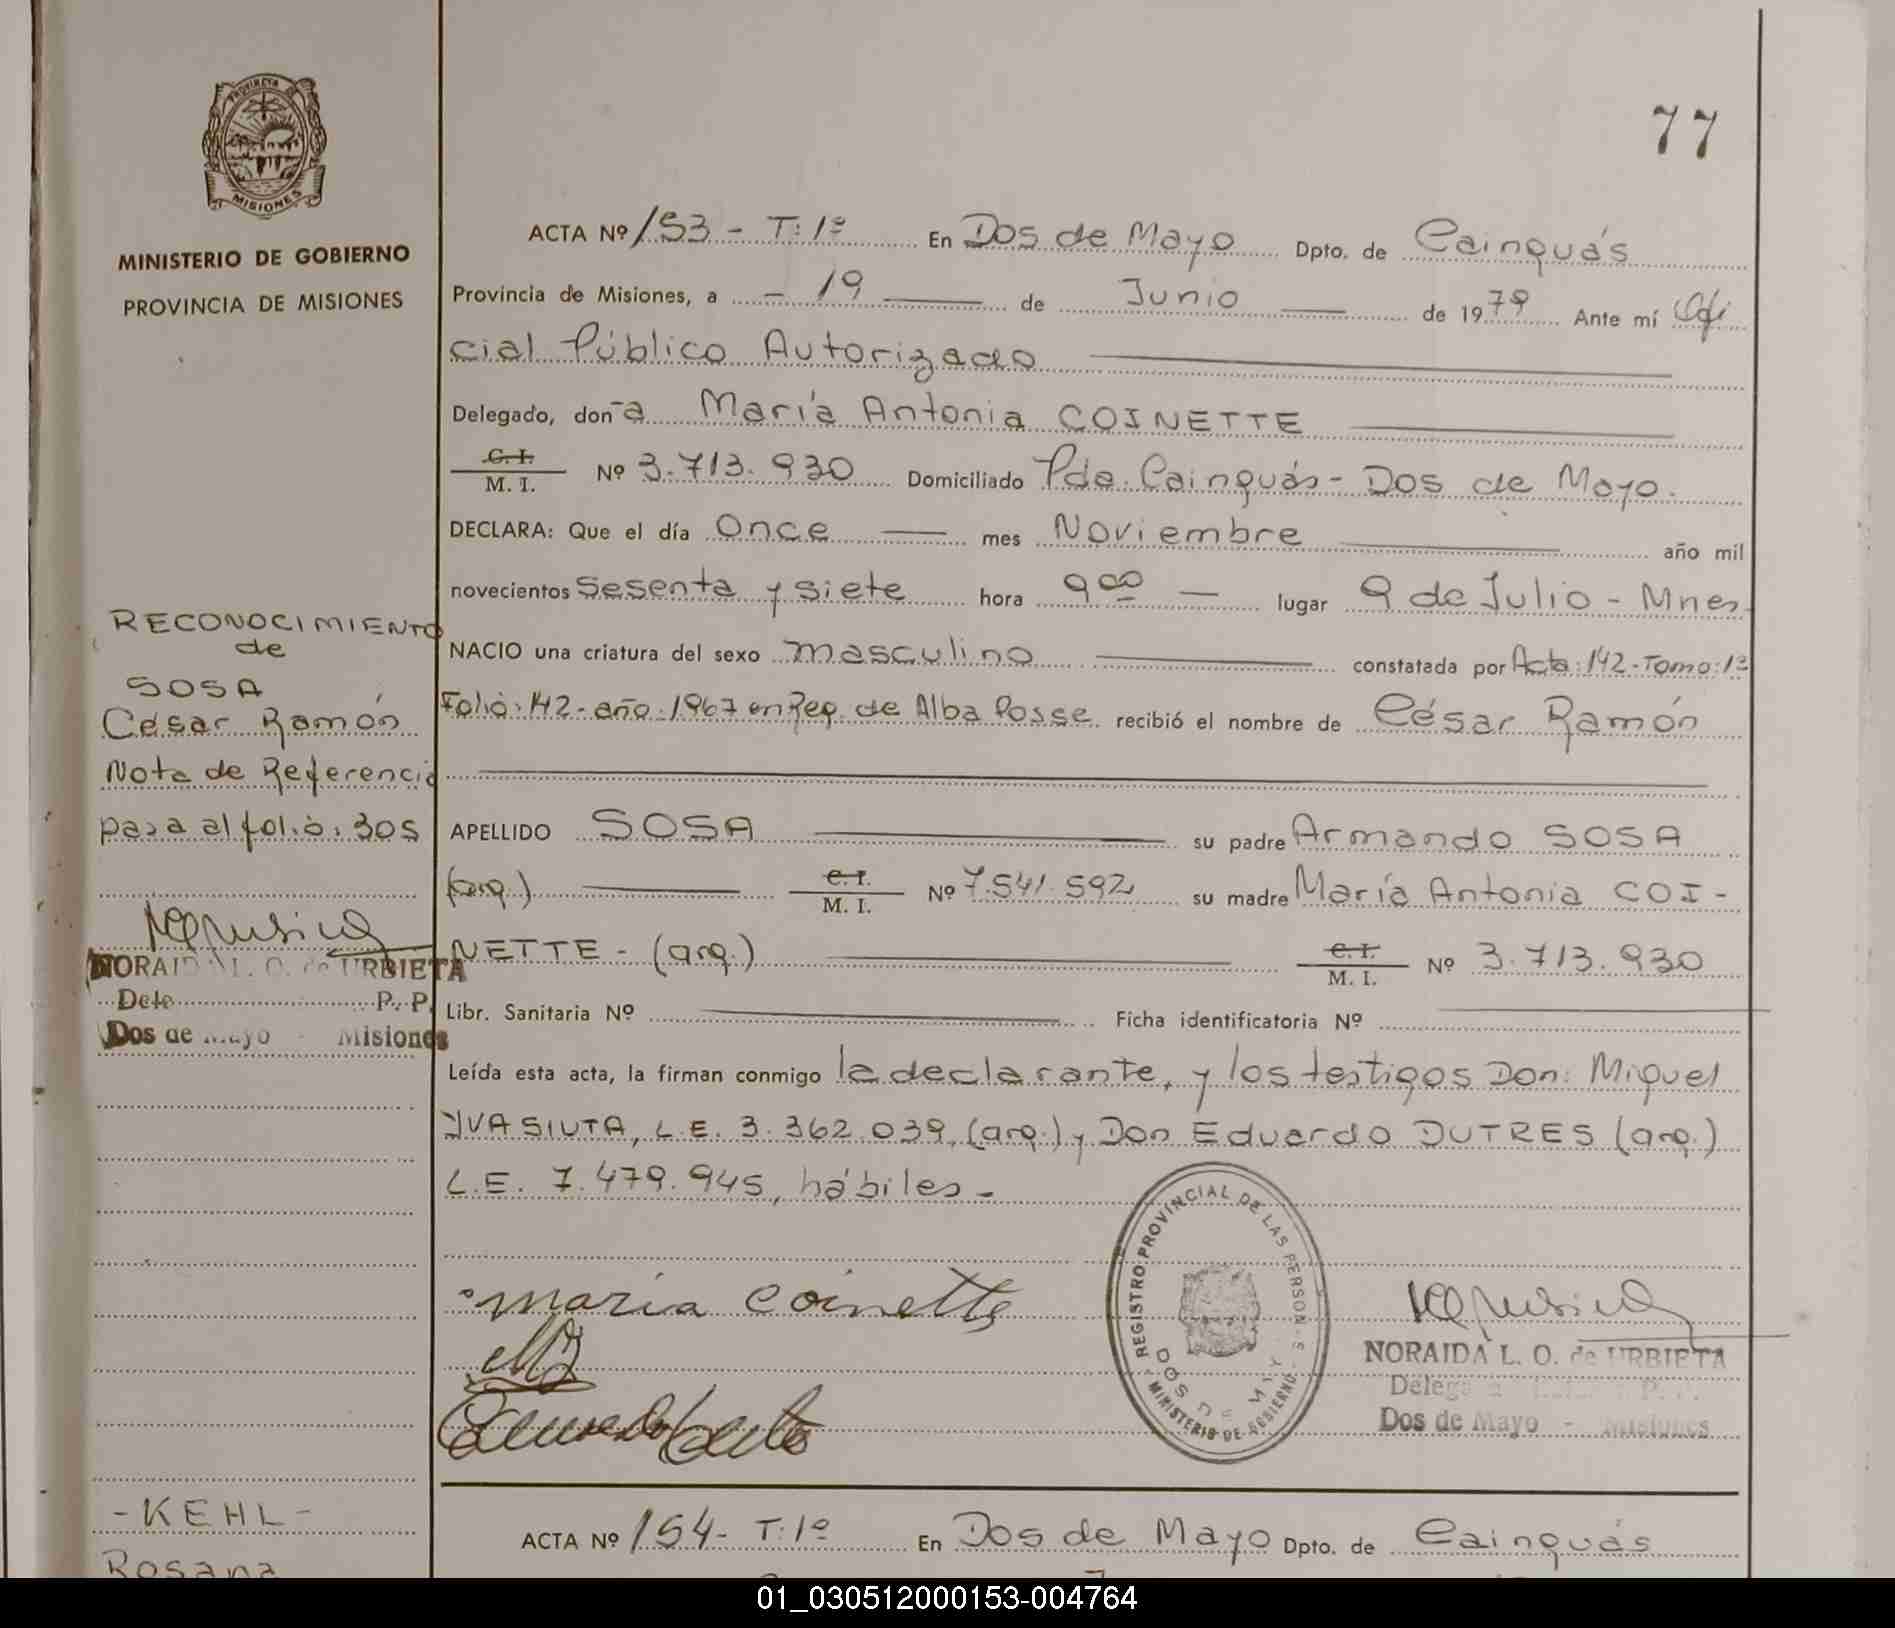 PROVINCIA DE
MISIONES
MINISTERIO DE GOBIERNO
PROVINCIA DE MISIONES
77
ACTA Nº 153 - T: 1º En Dos de Mayo Dpto. de Cainguás
Provincia de Misiones, a - 19 de Junio de 1979 Ante mí Ofi
cial Público Autorizado
Delegado, don-a María Antonia COINETTE
C. I.
M. I. Nº 3.713.930 Domiciliado Pda. Cainguás - Dos de Mayo.
DECLARA: Que el día Once mes Noviembre año mil
novecientos sesenta y siete hora 9 00 lugar 9 de Julio - Mnes.
NACIO una criatura del sexo masculino constatada por Acta: 142 - Tomo: 1º
Folio: 142 - año: 1967 en Reg. de Alba Posse recibió el nombre de César Ramón
APELLIDO SOSA su padre Armando SOSA
(arg.) C. I.
M. I. Nº 7.541.592 su madre María Antonia COI-
NETTE - (arg.) C. I.
M. I. Nº 3.713.930
Libr. Sanitaria Nº Ficha identificatoria Nº
Leída esta acta, la firman conmigo la declarante, y los testigos Don: Miguel
IVASIUTA, L.E. 3.362.039, (arg.) y Don Eduardo DUTRES (arg.)
L.E. 7.479.945, hábiles -
maria coinette
REGISTRO PROVINCIAL DE LAS PERSONAS
DOS DE MAYO
MINISTERIO DE GOBIERNO
NORAIDA L. O. de URBIETA
Dos de Mayo - Misiones
RECONOCIMIENTO
de
SOSA
César Ramón
Nota de Referencia
pasa al folio: 305
NORAIDA L. O. de URBIETA
Dele P. P.
Dos de Mayo - Misiones
- KEHL -
Rosana
ACTA Nº 154 - T: 1º En Dos de Mayo Dpto. de Cainguás
01_030512000153-004764